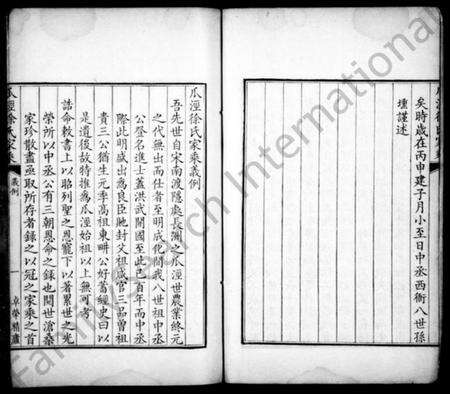 矣時歲在丙申建子月小至日中丞西衙八世孫
壇謹述
瓜涇徐氏家乘
瓜涇徐氏家乘義例
吾先世自宋南渡隱處長洲之瓜涇世農業終元
之代無出而仕者至明成化間我八世祖中丞
公登名進士蓋洪武開國至此已百年而中丞
際此明盛出為良臣馳封父祖咸官三品曾祖
貴三公猶生元季高祖東畊公好蓄經史曰以
是遺後故特推為瓜涇始祖以上無可考
誥命敕書上以昭列聖之恩寵下以著累世之光
榮所以中丞公有三朝恩命之錄也閱世滄桑
家珍散盡亟取所存者錄之以冠之家乘之首
瓜涇徐氏家乘
義例
一
FamilySearch International